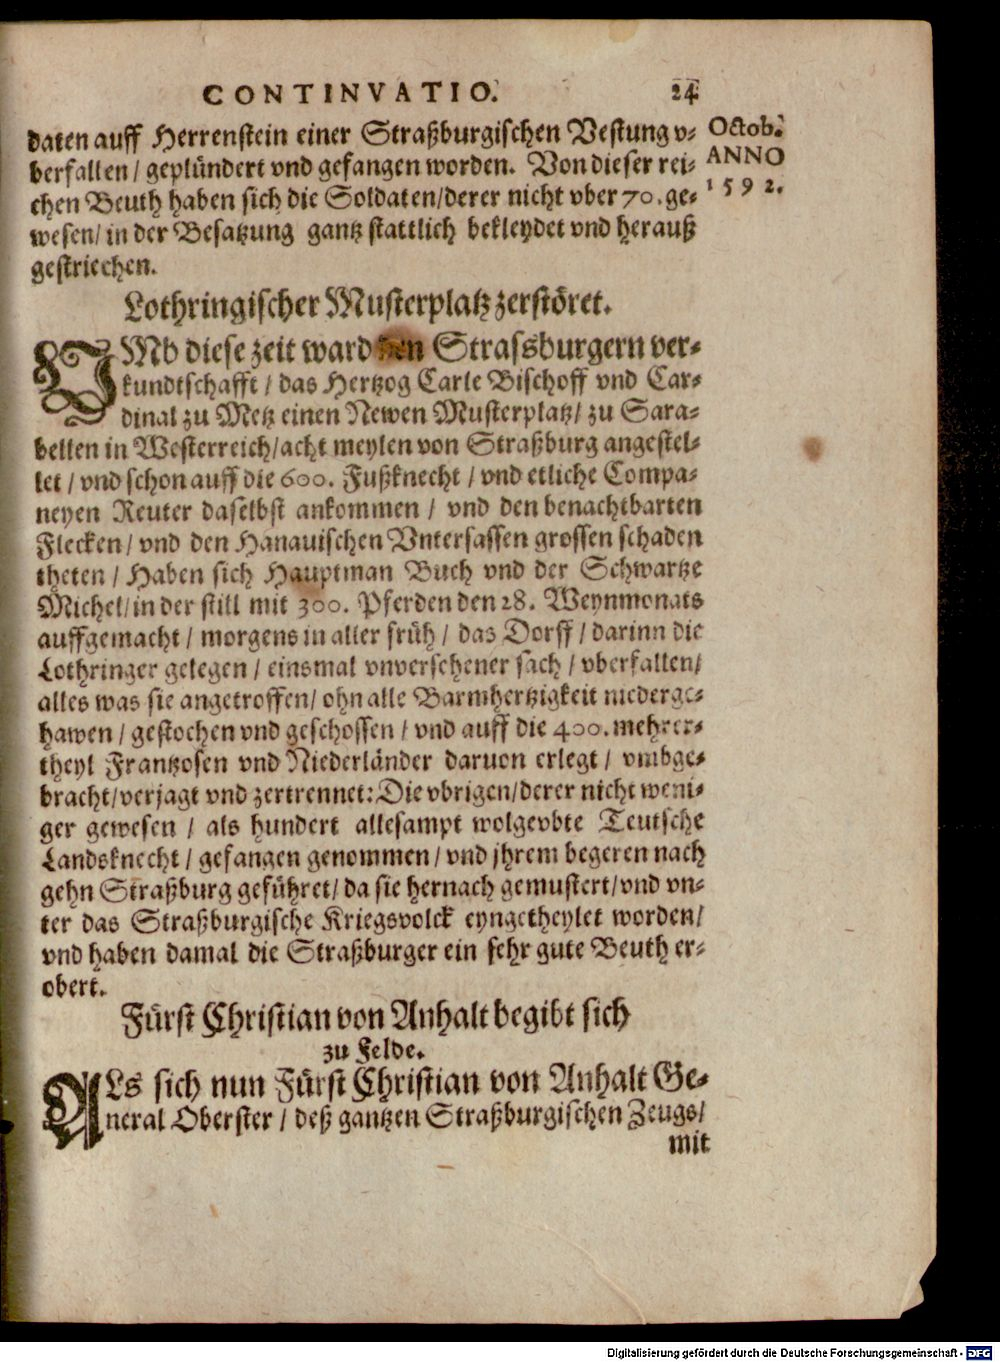 CONTINVATIO. 24
daten auff Herrenstein einer Straßburgischen Vestung v- Octob.
berfallen / geplündert vnd gefangen worden. Von dieser rei- ANNO
chen Beuth haben sich die Soldaten/derer nicht vber 70. ge- 1592.
wesen/ in der Besatzung gantz stattlich bekleydet vnd herauß
gestriechen.
Lothringischer Musterplatz zerstöret.
VMb diese zeit ward den Strassburgern ver-
kundtschafft / das Hertzog Carle Bischoff vnd Car-
dinal zu Metz einen Newen Musterplatz/ zu Sara-
bellen in Westerreich/acht meylen von Straßburg angestel-
let / vnd schon auff die 600. Fußknecht / vnd etliche Compa-
neyen Reuter daselbst ankommen / vnd den benachtbarten
Flecken/ vnd den Hanauischen Vntersassen grossen schaden
theten / Haben sich Hauptman Buch vnd der Schwartze
Michel/in der still mit 300. Pferden den 28. Weynmonats
auffgemacht / morgens in aller früh / das Dorff / darinn die
Lothringer gelegen / einsmal vnversehener sach / vberfallen/
alles was sie angetroffen/ ohn alle Barmhertzigkeit niederge-
hawen / gestochen vnd geschossen / vnd auff die 400. mehrer-
theyl Frantzosen vnd Niederländer daruon erlegt / vmbge-
bracht/verjagt vnd zertrennet: Die vbrigen/derer nicht weni-
ger gewesen / als hundert allesampt wolgevbte Teutsche
Landsknecht / gefangen genommen / vnd jhrem begeren nach
gehn Straßburg geführet/ da sie hernach gemustert/vnd vn-
ter das Straßburgische Kriegsvolck eyngetheylet worden/
vnd haben damal die Straßburger ein sehr gute Beuth er-
obert.
Fürst Christian von Anhalt begibt sich
zu Felde.
ALs sich nun Fürst Christian von Anhalt Ge-
neral Oberster / deß gantzen Straßburgischen Zeugs/
mit
Digitalisierung gefördert durch die Deutsche Forschungsgemeinschaft - DFG